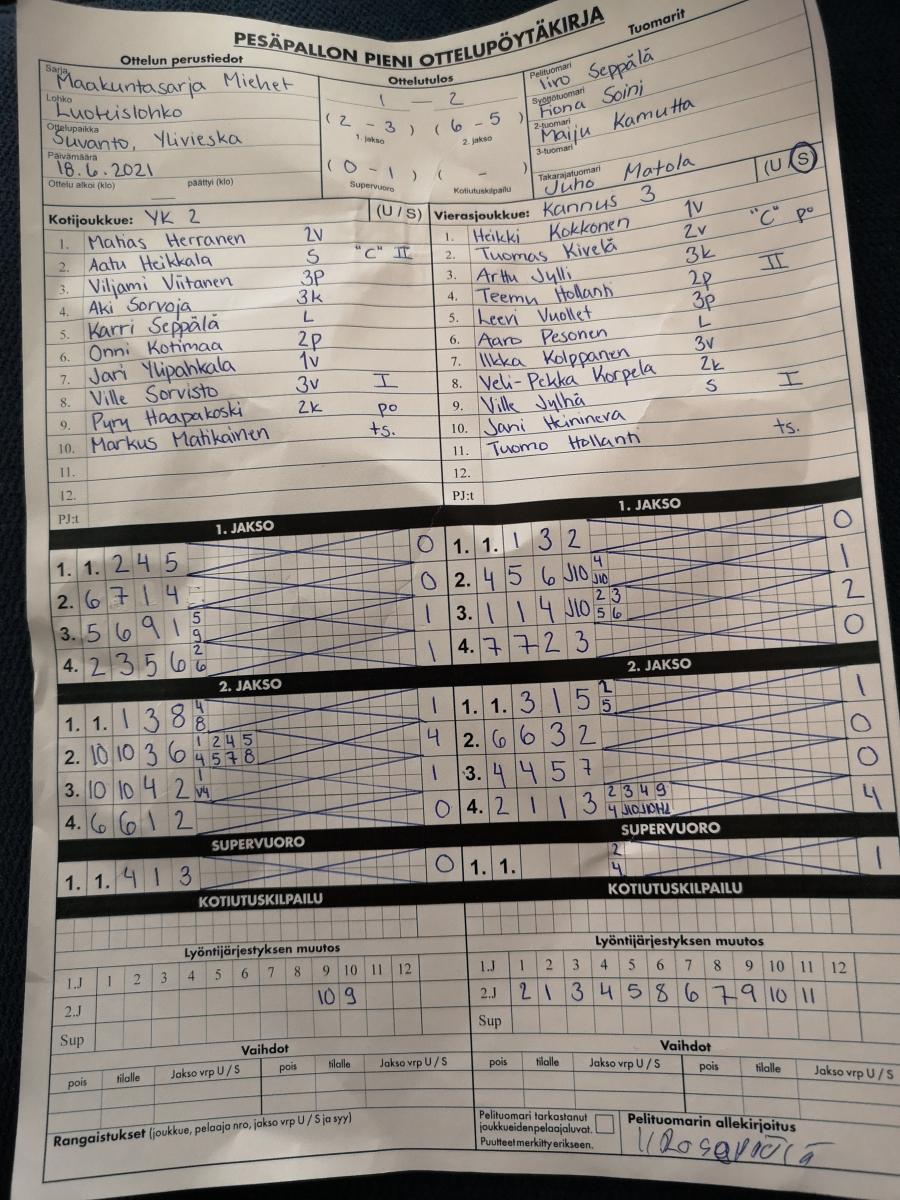 PESÄPALLON PIENI OTTELUPÖYTÄKIRJA
Ottelun perustiedot
Sarja
Maakuntasarja Miehet
Lohko
Luoteislohko
Ottelupaikka
Suvanto, Ylivieska
Päivämäärä
18.6.2021
Ottelu alkoi (klo) päättyi (klo)
Ottelutulos
1 — 2
(2 - 3) (6 - 5)
1. jakso 2. jakso
(0 - 1) ( - )
Supervuoro Kotiutuskilpailu
Tuomarit
Pelituomari
Iiro Seppälä
Syöttötuomari
Fiona Soini
2-tuomari
Maiju Kamutta
3-tuomari
Takarajatuomari
Juho Matola
(U / S)
Kotijoukkue: YK 2 (U / S)
1. Matias Herranen 2v
2. Aatu Heikkala S "C" II
3. Viljami Viitanen 3p
4. Aki Sorvoja 3k
5. Karri Seppälä L
6. Onni Kotimaa 2p
7. Jari Ylipahkala 1v
8. Ville Sorvisto 3v I
9. Pyry Haapakoski 2k po
10. Markus Matikainen ts.
11.
12.
PJ:t
Vierasjoukkue: Kannus 3
1. Heikki Kokkonen 1v "C" po
2. Tuomas Kivelä 2v
3. Arttu Jylli 3k II
4. Teemu Hollanti 2p
5. Leevi Vuollet 3p
6. Aaro Pesonen L
7. Ilkka Kolppanen 3v
8. Veli-Pekka Korpela 2k
9. Ville Jylhä S I
10. Jani
11. Tuomo Hollanti ts.
12.
PJ:t
1. JAKSO
1. 1. 2 4 5 0
2. 6 7 1 4 0
3. 5 6 9 1 5 9 1
4. 2 3 5 6 2 6 1
2. JAKSO
1. 1. 1 3 8 4 8 1
2. 10 10 3 6 1 2 4 5 4 5 7 8 4
3. 10 10 4 2 1 V4 1
4. 6 6 1 2 0
SUPERVUORO
1. 1. 4 1 3 0
KOTIUTUSKILPAILU
1. JAKSO
1. 1. 1 3 2 0
2. 4 5 6 J10 4 J10 1
3. 1 1 4 J10 2 3 5 6 2
4. 7 7 2 3 0
2. JAKSO
1. 1. 3 1 5 2 5 1
2. 6 6 3 2 0
3. 4 4 5 7 0
4. 2 1 1 3 2 3 4 9 4 J10 J10 4
SUPERVUORO
1. 1. 2 4 1
KOTIUTUSKILPAILU
Lyöntijärjestyksen muutos
1.J 1 2 3 4 5 6 7 8 9 10 11 12
2.J 10 9
Sup
Vaihdot
pois tilalle Jakso vrp U / S pois tilalle Jakso vrp U / S
Rangaistukset (joukkue, pelaaja nro, jakso vrp U / S ja syy)
Lyöntijärjestyksen muutos
1.J 1 2 3 4 5 6 7 8 9 10 11 12
2.J 2 1 3 4 5 8 6 7 9 10 11
Sup
Vaihdot
pois tilalle Jakso vrp U / S pois tilalle Jakso vrp U / S
Pelituomari tarkastanut
joukkueidenpelaajaluvat.
Puutteet merkitty erikseen.
Pelituomarin allekirjoitus